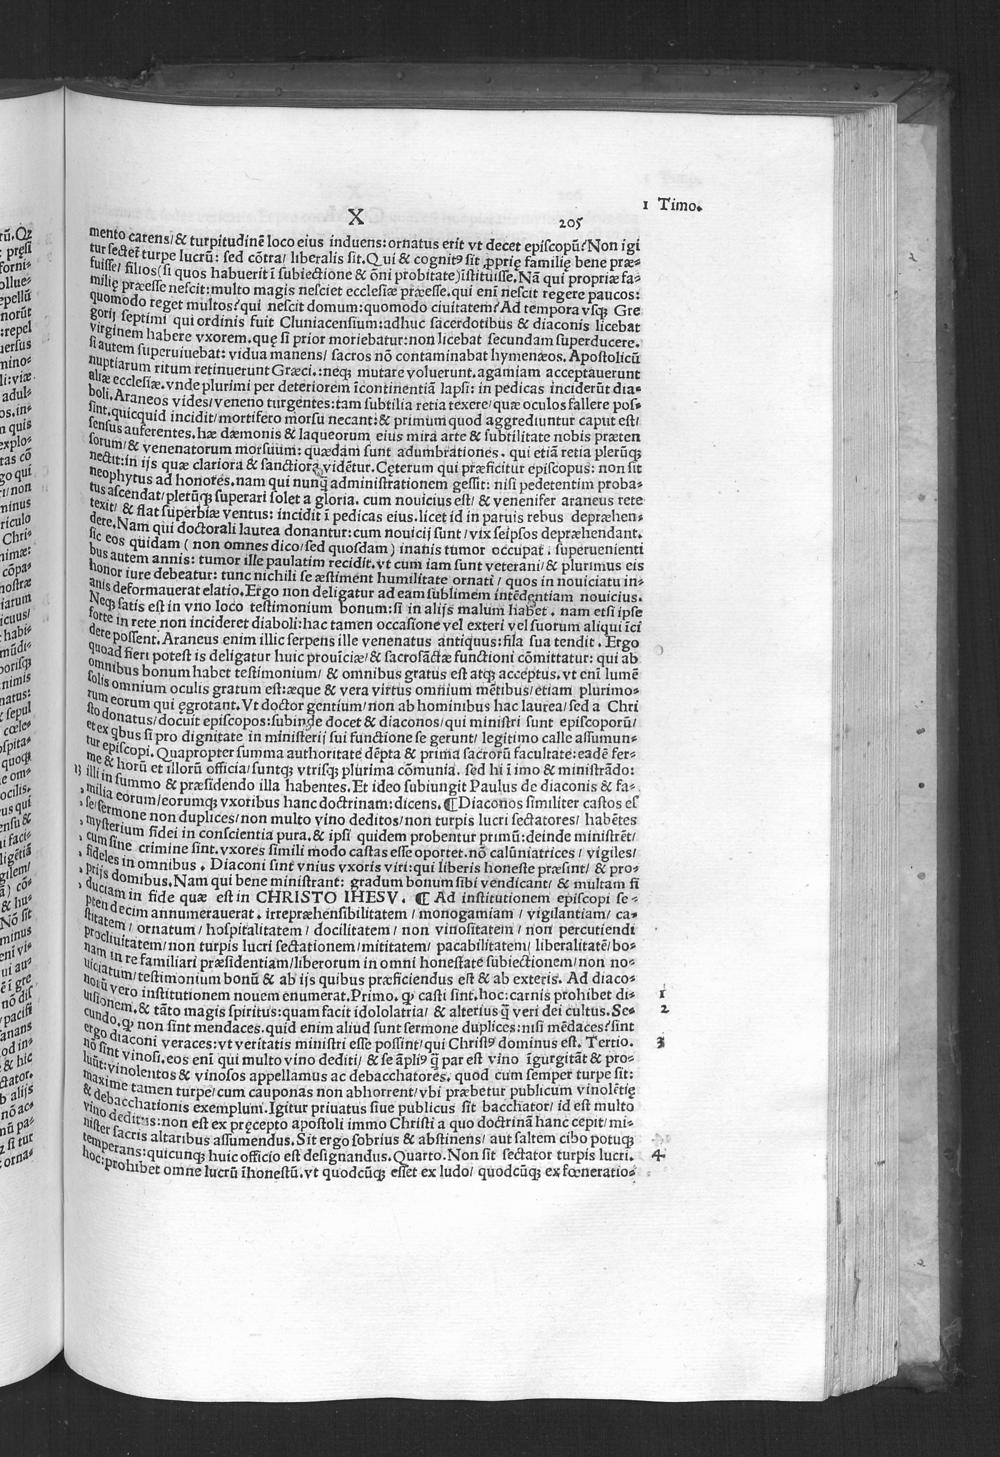 1 Timo.
X
205
mento carens/& turpitudinē loco eius induens:ornatus erit vt decet episcopū?Non igi
tur sectet̃ turpe lucrū: sed cōtra/ liberalis sit.Qui & cognitꝰ sit ꝓprię familię bene præ-
fuisse/ filios(si quos habuerit ī subiectione & ōni probitate)īstituisse.Nā qui propriæ fa-
milię præesse nescit:multo magis nesciet ecclesiæ præesse.qui enī nescit regere paucos:
quomodo reget multos?qui nescit domum:quomodo ciuitatem?Ad tempora vsqꝫ Gre
gorij septimi qui ordinis fuit Cluniacensium:adhuc sacerdotibus & diaconis licebat
virginem habere vxorem.quę si prior moriebatur:non licebat secundam superducere.
si autem superuiuebat: vidua manens/ sacros nō contaminabat hymenæos. Apostolicū
nuptiarum ritum retinuerunt Græci.:neqꝫ mutare voluerunt.agamiam acceptauerunt
aliæ ecclesiæ.vnde plurimi per deteriorem īcontinentiā lapsi: in pedicas inciderūt dia-
boli.Araneos vides/veneno turgentes:tam subtilia retia texere/quæ oculos fallere pos-
sint.quicquid incidit/mortifero morsu necant:& primum quod aggrediuntur caput est/
sensus auferentes.hæ dæmonis & laqueorum eius mira arte & subtilitate nobis præten
sorum/& venenatorum morsuum: quædam sunt adumbrationes. qui etiā retia plerūqꝫ
nectit:in ijs quæ clariora & sanctiora vidētur.Cęterum qui præficitur episcopus: non sit
neophytus ad honores.nam qui nunq̄ administrationem gessit: nisi pedetentim proba-
tus ascendat/plerūqꝫ superari solet a gloria. cum nouicius est/ & venenifer araneus rete
texit/ & flat superbiæ ventus: incidit ī pedicas eius.licet id in paruis rebus depræhen-
dere.Nam qui doctorali laurea donantur:cum nouicij sunt/vix seipsos depræhendant.
sic eos quidam ( non omnes dico/sed quosdam ) inanis tumor occupat. superuenienti
bus autem annis: tumor ille paulatim recidit.vt cum iam sunt veterani/& plurimus eis
honor iure debeatur: tunc nichili se æstiment humilitate ornati/ quos in nouiciatu in-
anis deformauerat elatio.Ergo non deligatur ad eam sublimem intēdentiam nouicius.
Neqꝫ satis est in vno loco testimonium bonum:si in alijs malum habet. nam etsi ipse
forte in rete non incideret diaboli:hac tamen occasiōe vel exteri vel suorum aliqui īci
dere possent.Araneus enim illic serpens ille venenatus antiquus:fila sua tendit. Ergo
quoad fieri potest is deligatur huic prouīciæ/& sacrosāctæ functioni cōmittatur: qui ab
omnibus bonum habet testimonium/ & omnibus gratus est atqꝫ acceptus.vt enī lumē
solis omnium oculis gratum est:æque & vera virtus omnium mētibus/etiam plurimo-
rum eorum qui ęgrotant.Vt doctor gentium/non ab hominibus hac laurea/sed a Chri
sto donatus/docuit episcopos:subinde docet & diaconos/qui ministri sunt episcoporū/
et ex qbus si pro dignitate in ministerij sui functione se gerunt/legitimo calle assumun-
tur episcopi.Quapropter summa authoritate dēpta & prima sacrorū facultate:eadē fer-
me & horū et illorū officia/suntqꝫ vtrisqꝫ plurima cōmunia. sed hi ī imo & ministrādo:
13 illi in summo & præsidendo illa habentes.Et ideo subiungit Paulus de diaconis & fa-
milia eorum/eorumqꝫ vxoribus hanc doctrinam:dicens.¶Diaconos similiter castos es
se/sermone non duplices/non multo vino deditos/non turpis lucri sectatores/ habētes
mysterium fidei in conscientia pura.& ipsi quidem probentur primū:deinde ministrēt/
cum sine crimine sint.vxores simili modo castas esse oportet.nō calūniatrices/ vigiles/
fideles in omnibus. Diaconi sint vnius vxoris viri:qui liberis honeste præsint/ & pro-
prijs domibus.Nam qui bene ministrant: gradum bonum sibi vendicant/ & multam fi
duciam in fide quæ est in CHRISTO IHESV. ¶ Ad institutionem episcopi se-
ptendecim annumerauerat. irrepræhensibilitatem/monogamiam/vigilantiam/ ca-
stitatem/ ornatum/hospitalitatem/ docilitatem/ non vinositatem/non percutiendi
procliuitatem/non turpis lucri sectationem/mititatem/ pacabilitatem/liberalitatē/bo-
nam in re familiari præsidentiam/liberorum in omni honestate subiectionem/non no-
uiciatum/testimonium bonū & ab ijs quibus præficiendus est & ab exteris. Ad diaco-
norū vero institutionem nouem enumerat.Primo. ꝙ casti sint.hoc:carnis prohibet di- 1
uisionem.& tāto magis spiritus:quam facit idololatria/ & alterius q̄ veri dei cultus.Se- 2
cundo.ꝙ non sint mendaces.quid enim aliud sunt sermone duplices:nisi mēdaces?sint
ergo diaconi veraces:vt veritatis ministri esse possint/qui Christꝰ dominus est. Tertio. 3
nō sint vinosi.eos enī qui multo vino dediti/ & se āpliꝰ q̄ par est vino īgurgitāt & pro-
luūt:vinolentos & vinosos appellamus ac debacchatores. quod cum semper turpe sit:
maxime tamen turpe/cum cauponas non abhorrent/vbi præbetur publicum vinolētię
& debacchationis exemplum.Igitur priuatus siue publicus sit bacchator/id est multo
vino deditus:non est ex pręcepto apostoli immo Christi a quo doctrinā hanc cepit/mi-
nister sacris altaribus assumendus.Sit ergo sobrius & abstinens/ aut saltem cibo potuqꝫ
temperans:quicunqꝫ huic officio est designandus.Quarto.Non sit sectator turpis lucri. 4
hoc:prohibet omne lucrū īhonestū.vt quodcūqꝫ esset ex ludo/ quodcūqꝫ ex fœneratio-